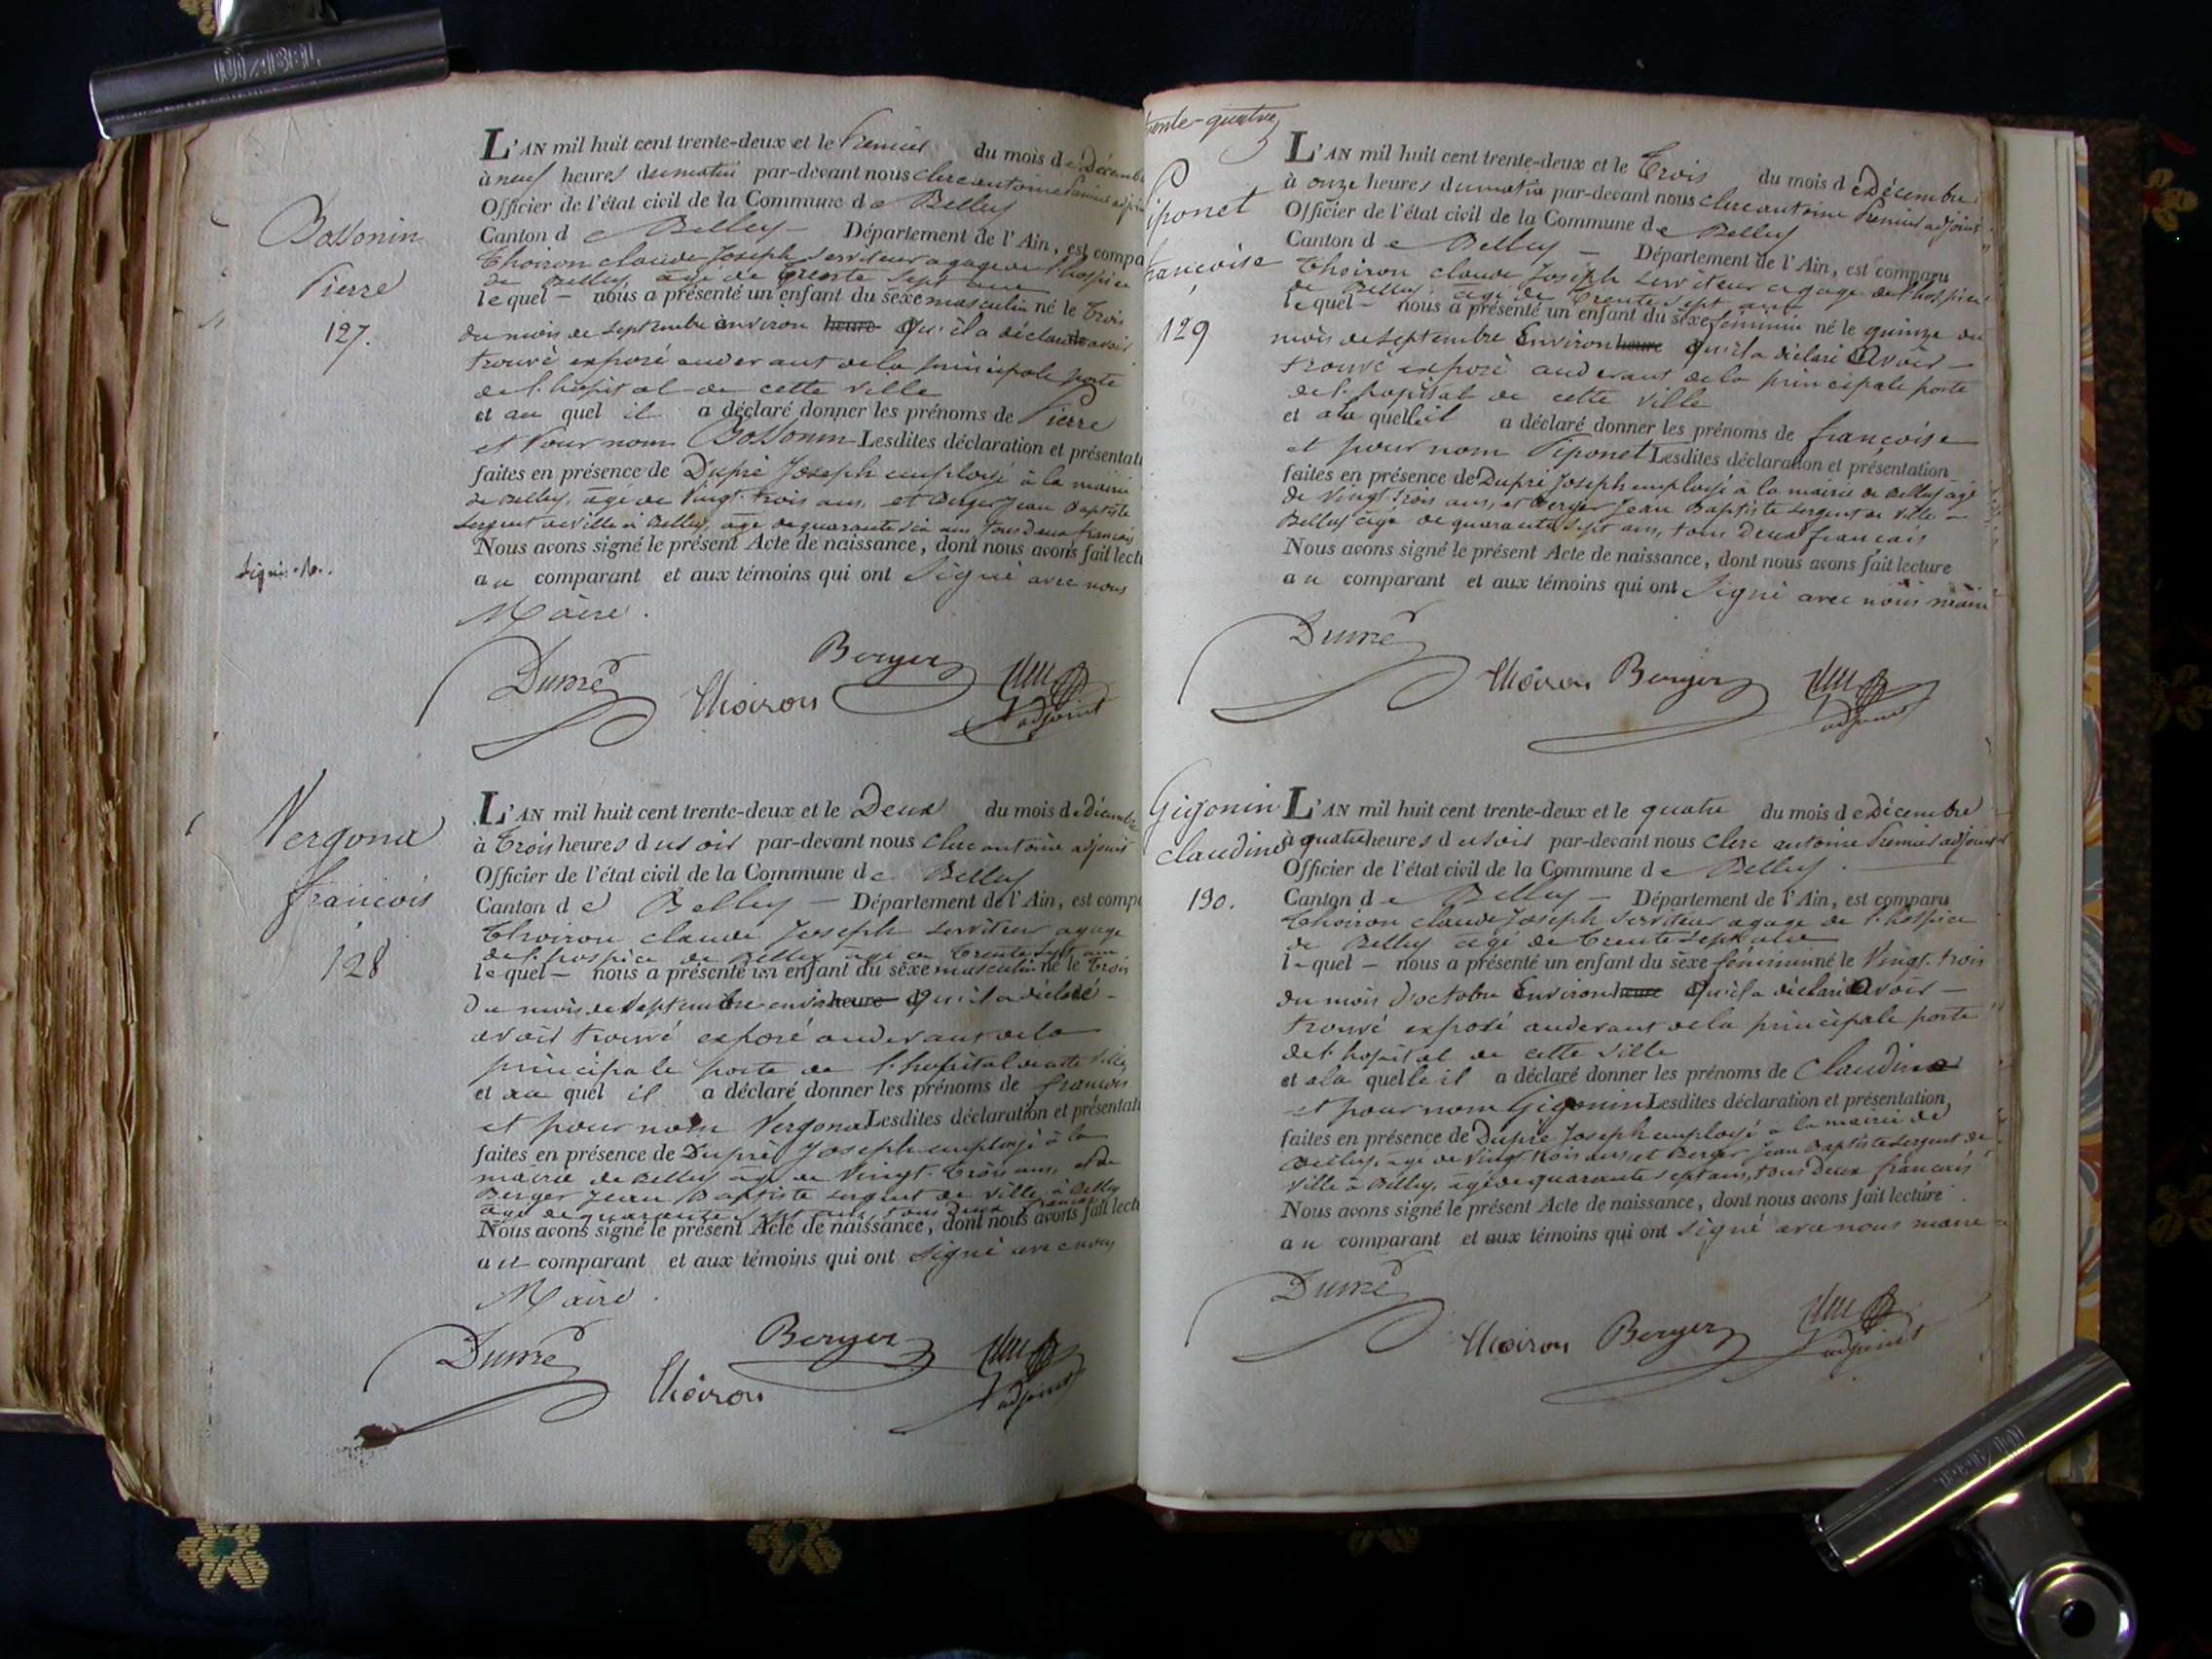 Bossonin
Pierre
127.
L'AN mil huit cent trente-deux et le Premier du mois de Décemb
à neuf heures du matin par-devant nous clerc antoine Premier adjoin
Officier de l'état civil de la Commune de Belley
Canton de Belley — Département de l'Ain, est compa
Thoiron claude Joseph serviteur agage de l'hospice
de Belley, agé de trente sept ans
lequel — nous a présenté un enfant du sexe masculin né le trois
du mois de septembre environ heure qu'il a déclaré avoir
trouvé exposé audevant de la principale porte
de l'hopital de cette ville
et au quel il a déclaré donner les prénoms de Pierre
et Pour nom Bossonin Lesdites déclaration et présentati
faites en présence de Dupré Joseph employé à la mairie
de Belley, agé de Vingt-trois ans, et Berger Jean Baptiste
sergent de ville à Belley, agé de quarante six ans, tous deux francais
Nous avons signé le présent Acte de naissance, dont nous avons fait lectu
au comparant et aux témoins qui ont signé avec nous
Maire.
Dupré Thoiron Berger
adjoint
Vergona
francois
128
L'AN mil huit cent trente-deux et le Deux du mois de Décembre
à Trois heures du soir par-devant nous clerc antoine adjoint
Officier de l'état civil de la Commune de Belley
Canton de Belley — Département de l'Ain, est comp
Thoiron claude Joseph serviteur agage
de l'hospice de Belley agé de trente sept ans
lequel — nous a présenté un enfant du sexe masculin né le trois
du mois de septembre environ heure qu'il a déclaré
avoir trouvé exposé audevant de la
principale porte de l'hopital de cette ville
et au quel il a déclaré donner les prénoms de francois
et pour nom Vergona Lesdites déclaration et présentati
faites en présence de Dupré Joseph employé à la
mairie de Belley agé de Vingt-trois ans, et de
Berger Jean Baptiste sergent de ville à Belley
agé de quarante sept ans, tous deux francais
Nous avons signé le présent Acte de naissance, dont nous avons fait lectu
au comparant et aux témoins qui ont signé avec nous
Maire.
Dupré Thoiron Berger
adjoint
trente-quatre
Piponet
françoise
129
L'AN mil huit cent trente-deux et le Trois du mois de Décembre
à onze heures du matin par-devant nous clerc antoine Premier adjoint
Officier de l'état civil de la Commune de Belley
Canton de Belley — Département de l'Ain, est comparu
Thoiron claude Joseph serviteur agage de l'hospice
de Belley. agé de trente sept ans
lequel — nous a présenté un enfant du sexe féminin né le quinze du
mois de septembre Environ heure qu'il a déclaré avoir —
trouvé exposé audevant de la principale porte
de l'hopital de cette ville
et ala quelle il a déclaré donner les prénoms de françoise
et pour nom Piponet Lesdites déclaration et présentation
faites en présence de Dupré Joseph employé à la mairie de Belley agé
de Vingt-trois ans, et Berger Jean Baptiste sergent de ville —
Belley agé de quarante sept ans, tous Deux francais
Nous avons signé le présent Acte de naissance, dont nous avons fait lecture
au comparant et aux témoins qui ont signé avec nous maire
Dupré Thoiron Berger
adjoint
Gigonin
claudine
130.
L'AN mil huit cent trente-deux et le quatre du mois de Décembre
à quatre heures du soir par-devant nous clerc antoine Premier adjoint
Officier de l'état civil de la Commune de Belley.
Canton de Belley — Département de l'Ain, est comparu
Thoiron claude Joseph serviteur agage de l'hospice
de Belley agé de trente sept ans
lequel — nous a présenté un enfant du sexe féminin né le Vingt-trois
du mois d'octobre Environ heure qu'il a déclaré avoir —
trouvé exposé audevant de la principale porte
de l'hopital de cette ville
et ala quelle il a déclaré donner les prénoms de Claudine
et pour nom Gigonin Lesdites déclaration et présentation
faites en présence de Dupré Joseph employé à la mairie de
Belley, agé de Vingt trois ans, et Berger Jean Baptiste sergent de
ville à Belley, agé de quarante sept ans, tous Deux francais
Nous avons signé le présent Acte de naissance, dont nous avons fait lecture
au comparant et aux témoins qui ont signé avec nous maire
Dupré Thoiron Berger
adjoint